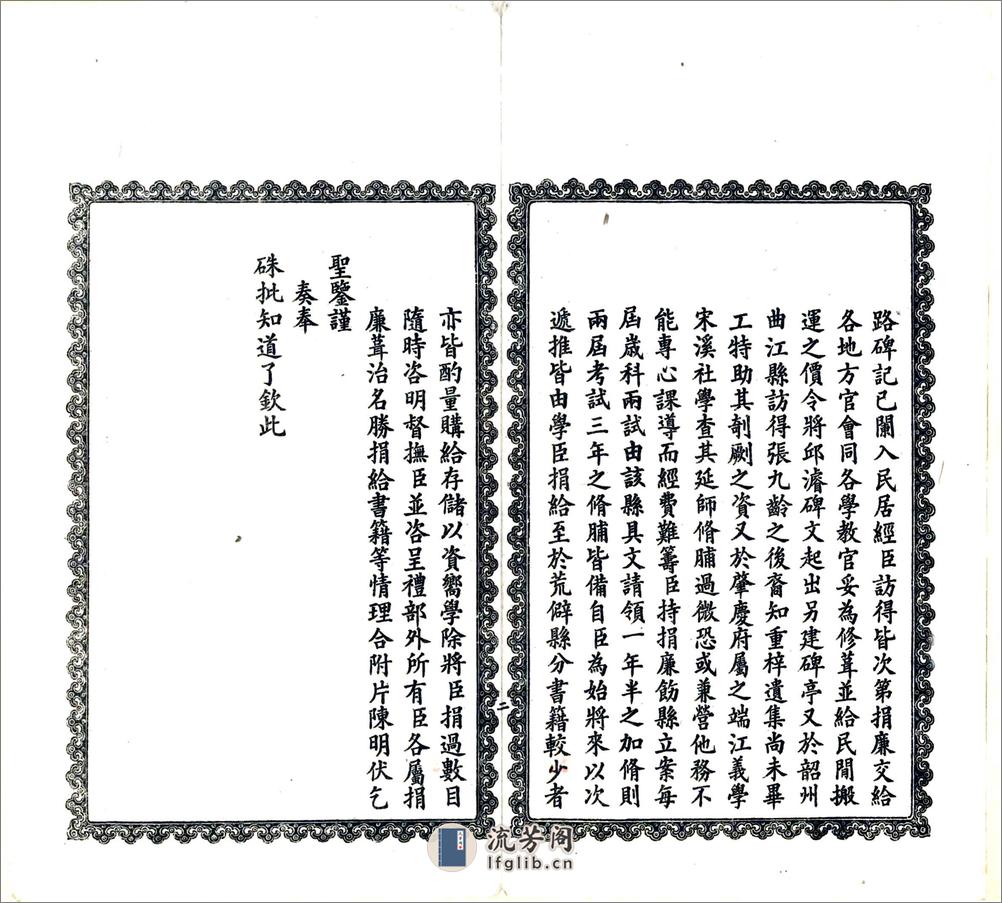 路碑記已闌入民居經臣訪得皆次第捐廉交給
各地方官會同各學教官妥為修葺並給民間搬
運之價令將邱濬碑文起出另建碑亭又於韶州
曲江縣訪得張九齡之後裔知重梓遺集尚未畢
工特助其剞劂之資又於肇慶府屬之端江義學
宋溪社學查其延師脩脯過微恐或兼營他務不
能專心課導而經費難籌臣持捐廉飭縣立案每
屆歲科兩試由該縣具文請領一年半之加脩則
兩屆考試三年之脩脯皆備自臣為始將來以次
遞推皆由學臣捐給至於荒僻縣分書籍較少者
二
亦皆酌量購給存儲以資嚮學除將臣捐過數目
隨時咨明督撫臣並咨呈禮部外所有臣各屬捐
廉葺治名勝捐給書籍等情理合附片陳明伏乞
聖鑒謹
奏奉
硃批知道了欽此
流芳阁
lfglib.cn